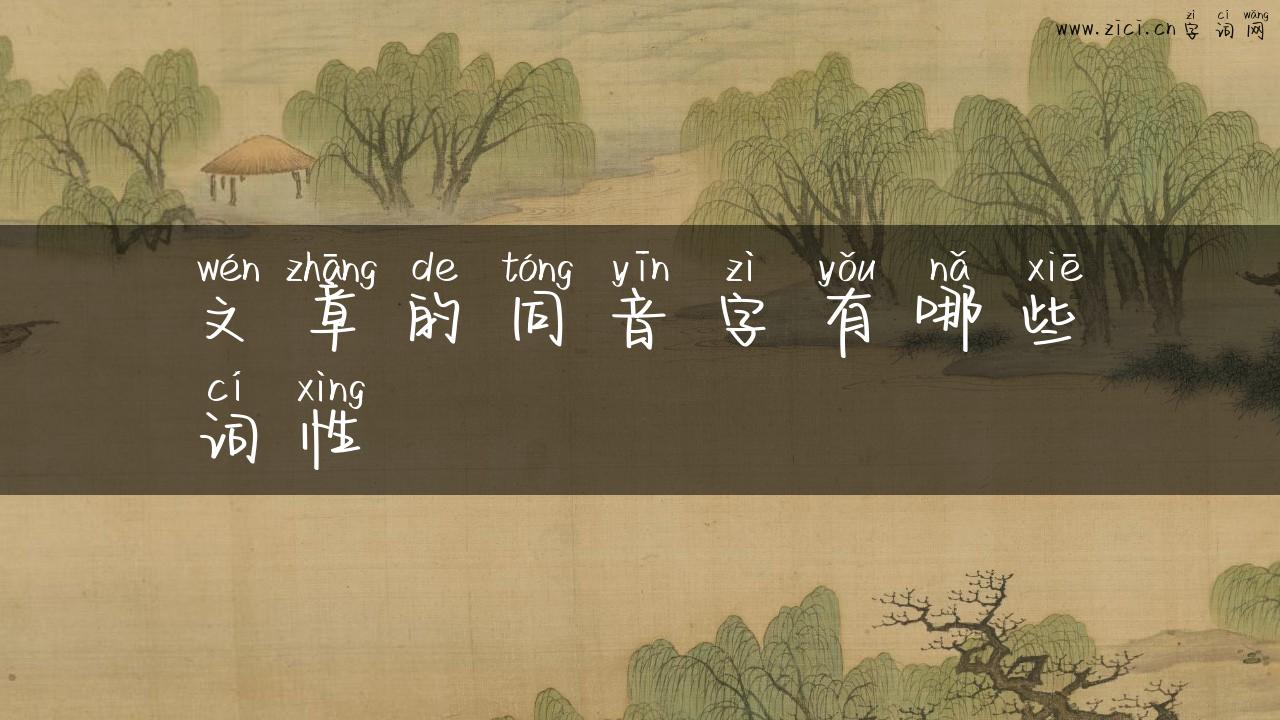 zì cí wǎng
www.zici.cn 字词网
wén zhāng de tóng yīn zì yǒu nǎ xiē
文章的同音字有哪些
cí xìng
词性